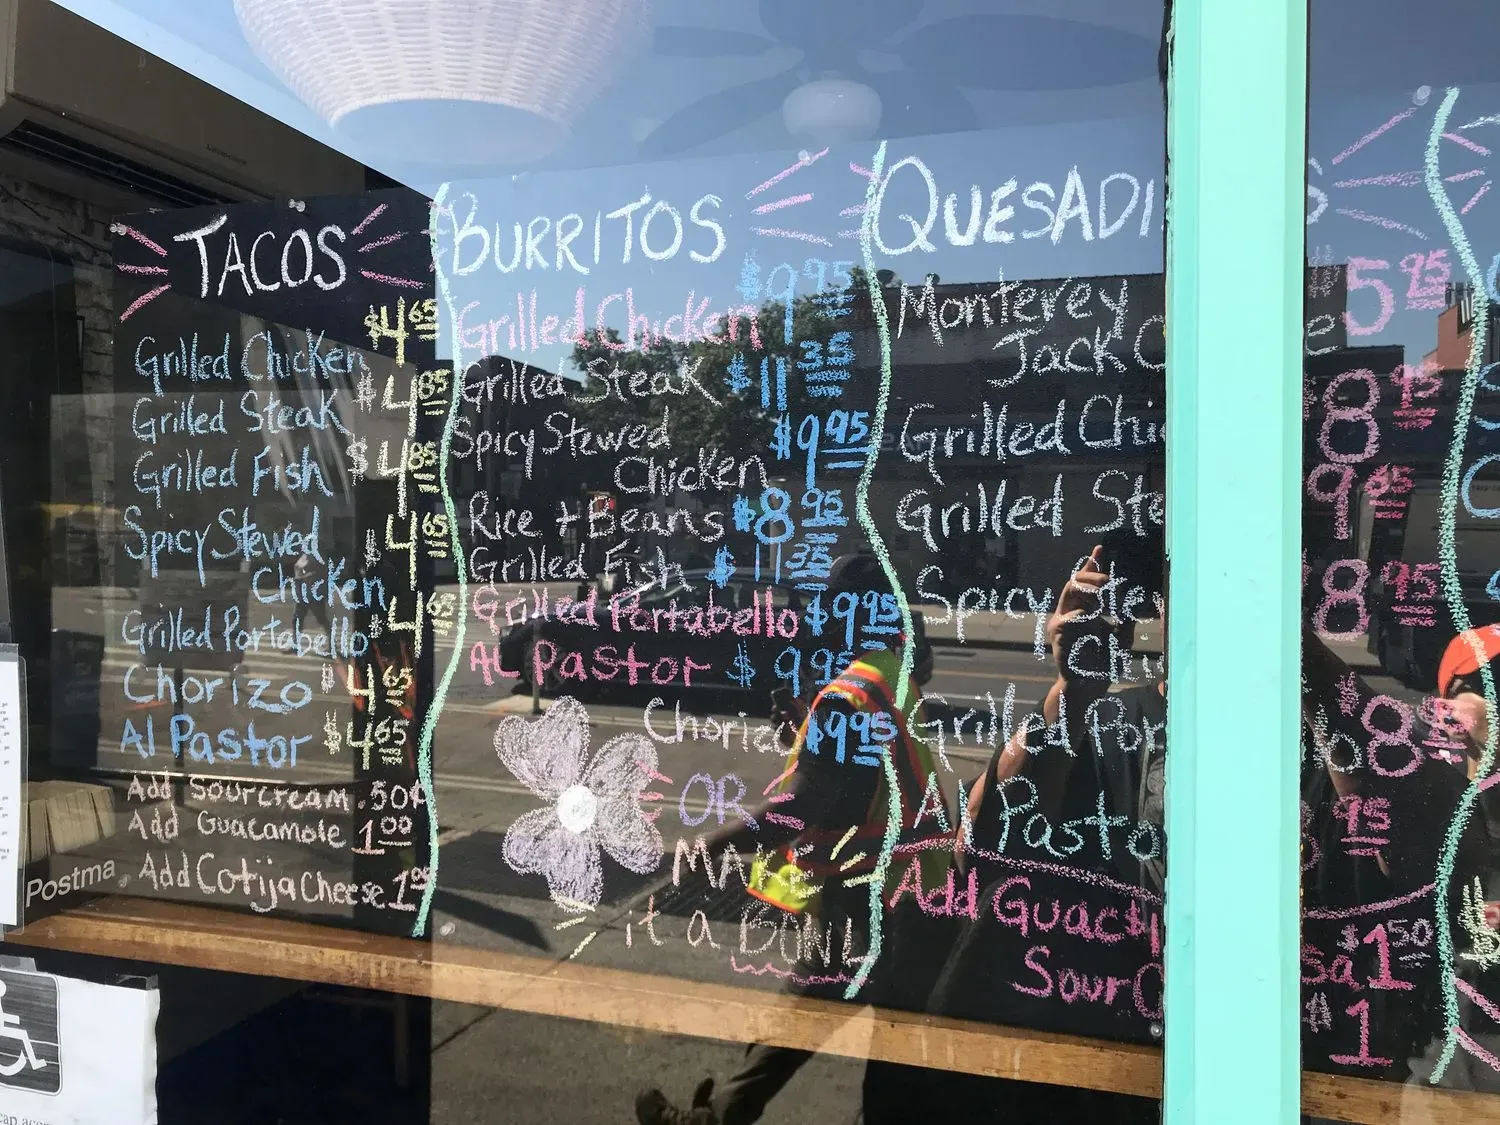 TACOS
$4.65
Grilled Chicken
$4.85
Grilled Steak
$4.85
Grilled Fish
$4.65
Spicy Stewed
Chicken
$4.65
Grilled Portabello
Chorizo $4.65
Al Pastor $4.65
Add Sourcream .50¢
Add Guacamole 1.00
Add Cotija Cheese 1.00
Postma
BURRITOS
$9.95
Grilled Chicken
Grilled Steak $11.35
Spicy Stewed $9.95
Chicken
Rice + Beans $8.95
Grilled Fish $11.35
Grilled Portabello $9.95
Al Pastor $9.95
Chorizo $9.95
OR
MAKE
it a BOWL
QUESADI S
Monterey $5.95
Jack C e
Grilled Chi $8.95
Grilled Ste $9.95
Spicy Stew $8.95
Chi
Grilled Por o $8.95
Al Pasto 95
Add Guac $1.50
Sour $1